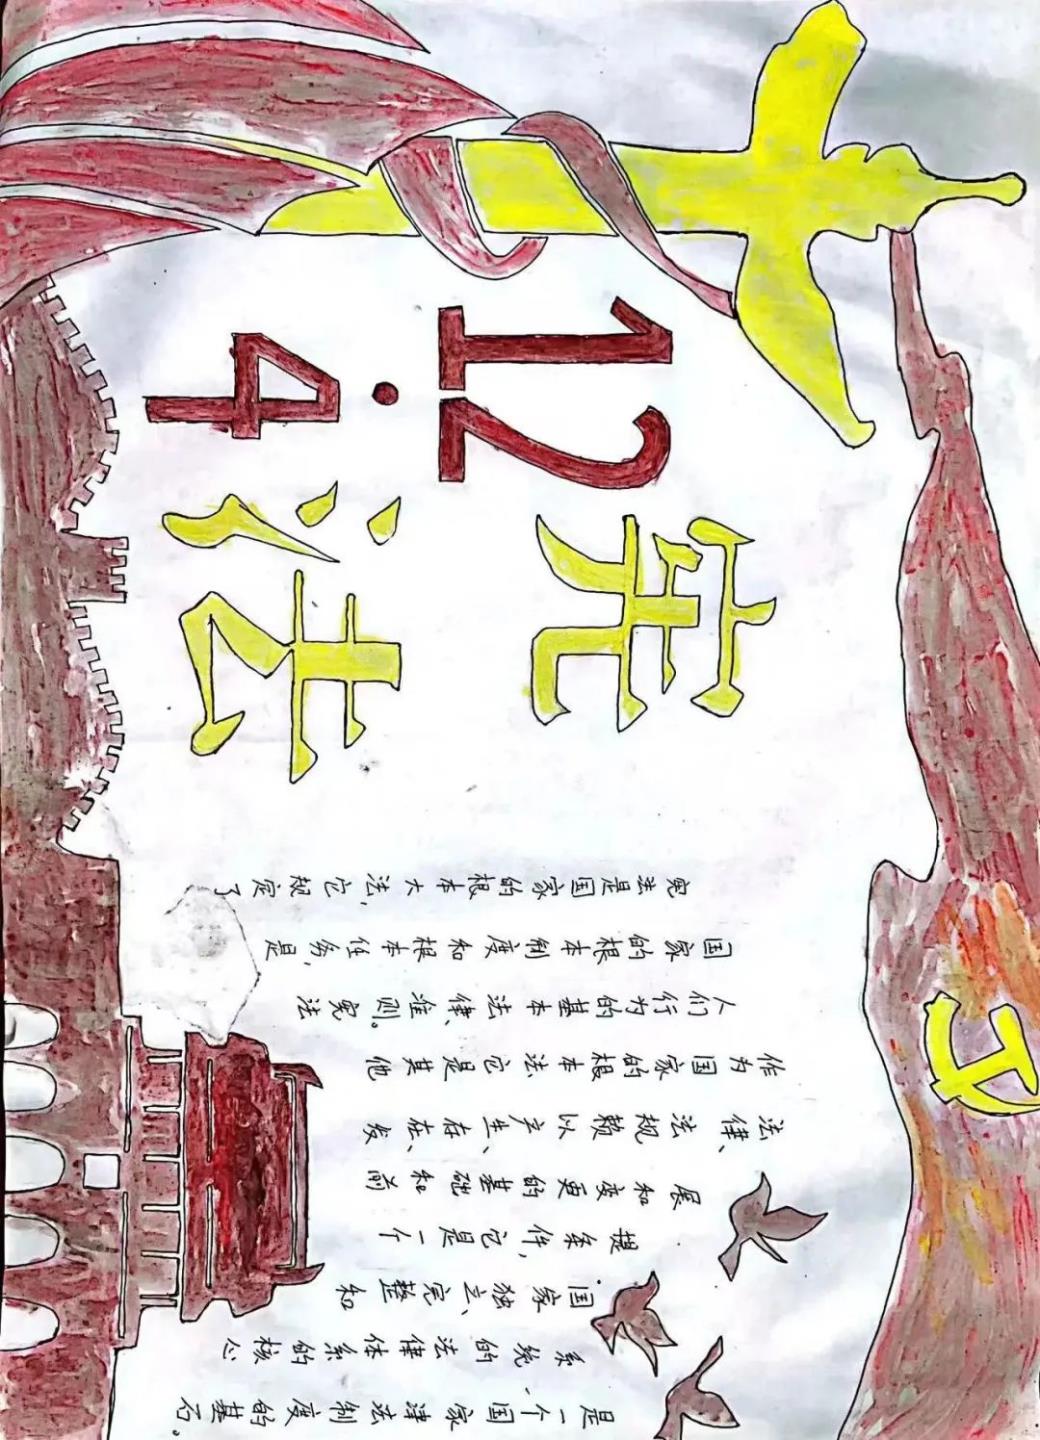 12·4
宪法
宪法是国家的根本大法,它规定了
国家的根本制度和根本任务,是
人们行为的基本法律、准则。宪法
作为国家的根本法,它是其他
法律、法规赖以产生、存在、发
展和变更的基础和前
提条件,它是一个
国家独立、完整和
系统的法律体系的核心
、是一个国家津法制度的基石。